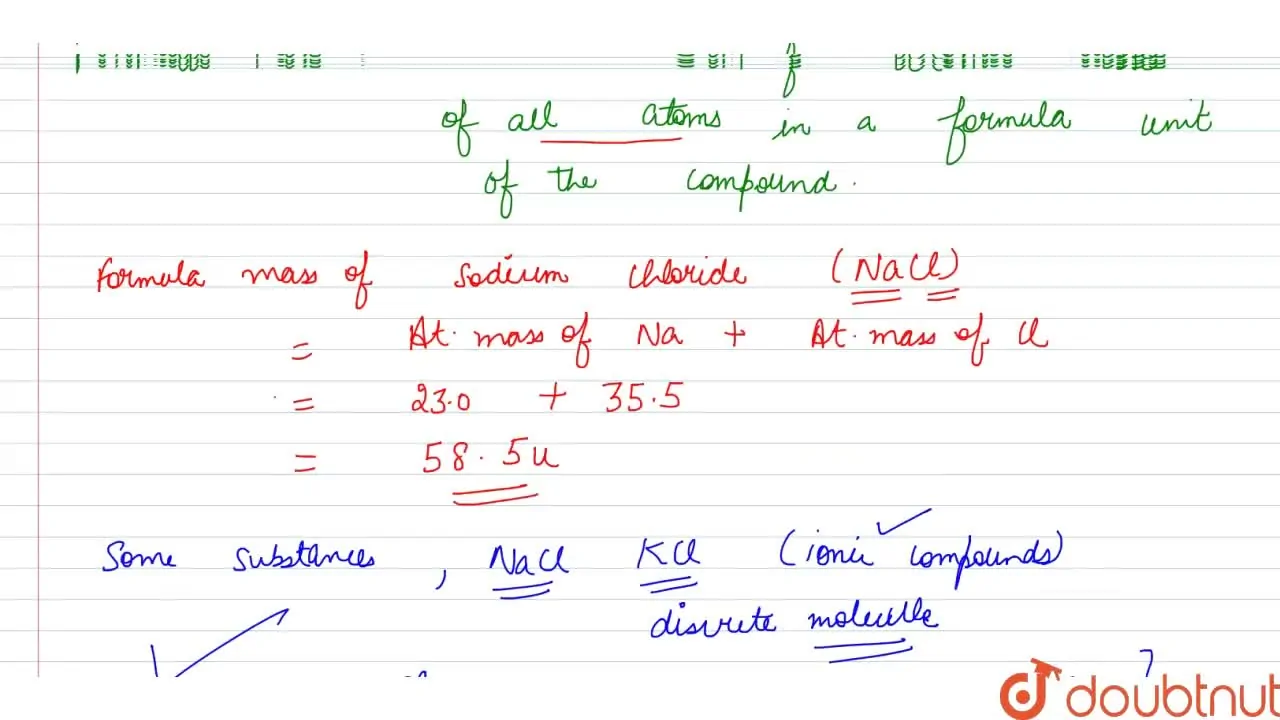 of all atoms in a formula unit
of the compound.
Formula mass of Sodium chloride (NaCl)
= At. mass of Na + At. mass of Cl
= 23.0 + 35.5
= 58.5u
Some substances, NaCl KCl (ionic compounds)
discrete molecule
doubtnut